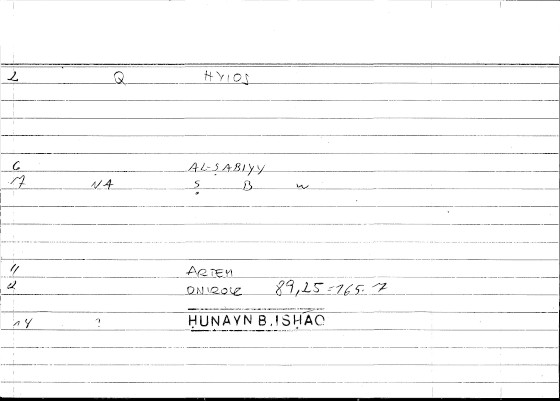 2 Q HYIOS
6 AL-ṢABIYY
7 NA Ṣ B W
11 ARTEM
12 ONIROKR 89,25 = 165.7
14 ? HUNAYN B.ISHAQ